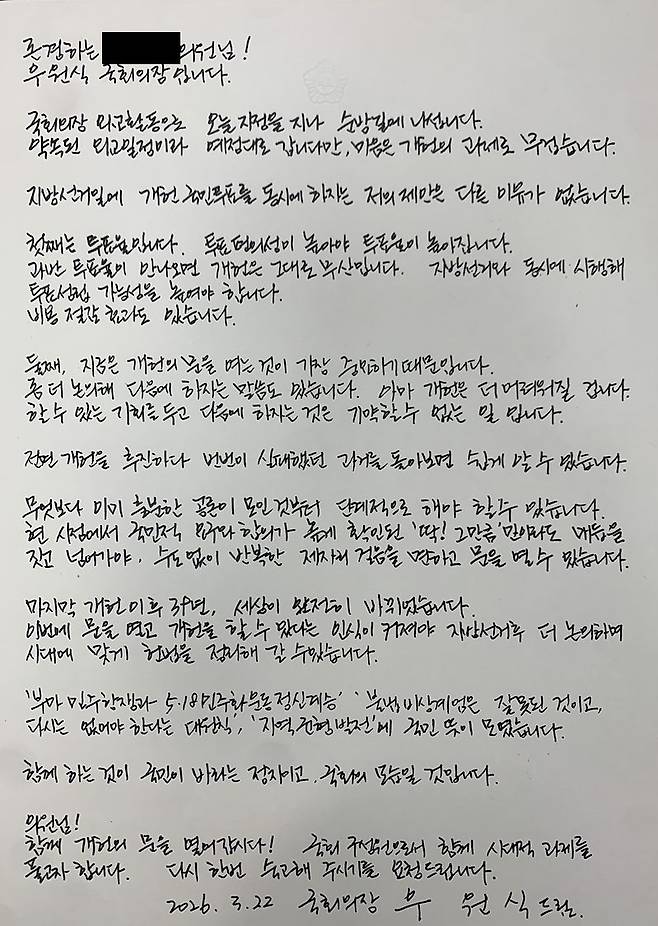 존경하는 의원님!
우원식 국회의장입니다.
국회의장 외교활동으로 오늘 자정을 지나 순방길에 나섭니다.
약속된 외교일정이라 예정대로 갑니다만, 마음은 개헌의 과제로 무겁습니다.
지방선거일에 개헌 국민투표를 동시에 하자는 저의 제안은 다른 이유가 없습니다.
첫째는 투표율입니다. 투표 편의성이 높아야 투표율이 높아집니다.
과반 투표율이 안나오면 개헌은 그대로 무산입니다. 지방선거와 동시에 시행해
투표성립 가능성을 높여야 합니다.
비용 절감 효과도 있습니다.
둘째, 지금은 개헌의 문을 여는 것이 가장 중요하기 때문입니다.
좀 더 논의해 다음에 하자는 말씀도 있습니다. 아마 개헌은 더 어려워질 겁니다.
할 수 있는 기회를 두고 다음에 하자는 것은 기약할 수 없는 일 입니다.
전면 개헌을 추진하다 번번이 실패했던 과거를 돌아보면 쉽게 알 수 있습니다.
무엇보다 이미 충분한 공론이 모인 것부터 단계적으로 해야 할 수 있습니다.
현 시점에서 국민적 요구와 합의가 높게 확인된 '딱! 그만큼'만이라도 매듭을
짓고 넘어가야, 수도 없이 반복한 제자리 걸음을 면하고 문을 열 수 있습니다.
마지막 개헌 이후 39년, 세상이 완전히 바뀌었습니다.
이번에 문을 열고 개헌을 할 수 있다는 인식이 커져야 지방선거후 더 논의하며
시대에 맞게 헌법을 정리해 갈 수있습니다.
'부마 민주항쟁과 5·18민주화운동 정신계승' '불법비상계엄은 잘못된 것이고,
다시는 없어야 한다는 대원칙', '지역균형발전'에 국민 뜻이 모였습니다.
함께 하는 것이 국민이 바라는 정치이고, 국회의 모습일 것입니다.
의원님!
함께 개헌의 문을 열어갑시다! 국회 구성원으로서 함께 시대적 과제를
풀고자 합니다. 다시 한번 숙고해 주시기를 요청드립니다.
2026. 3. 22 국회의장 우 원 식 드림.